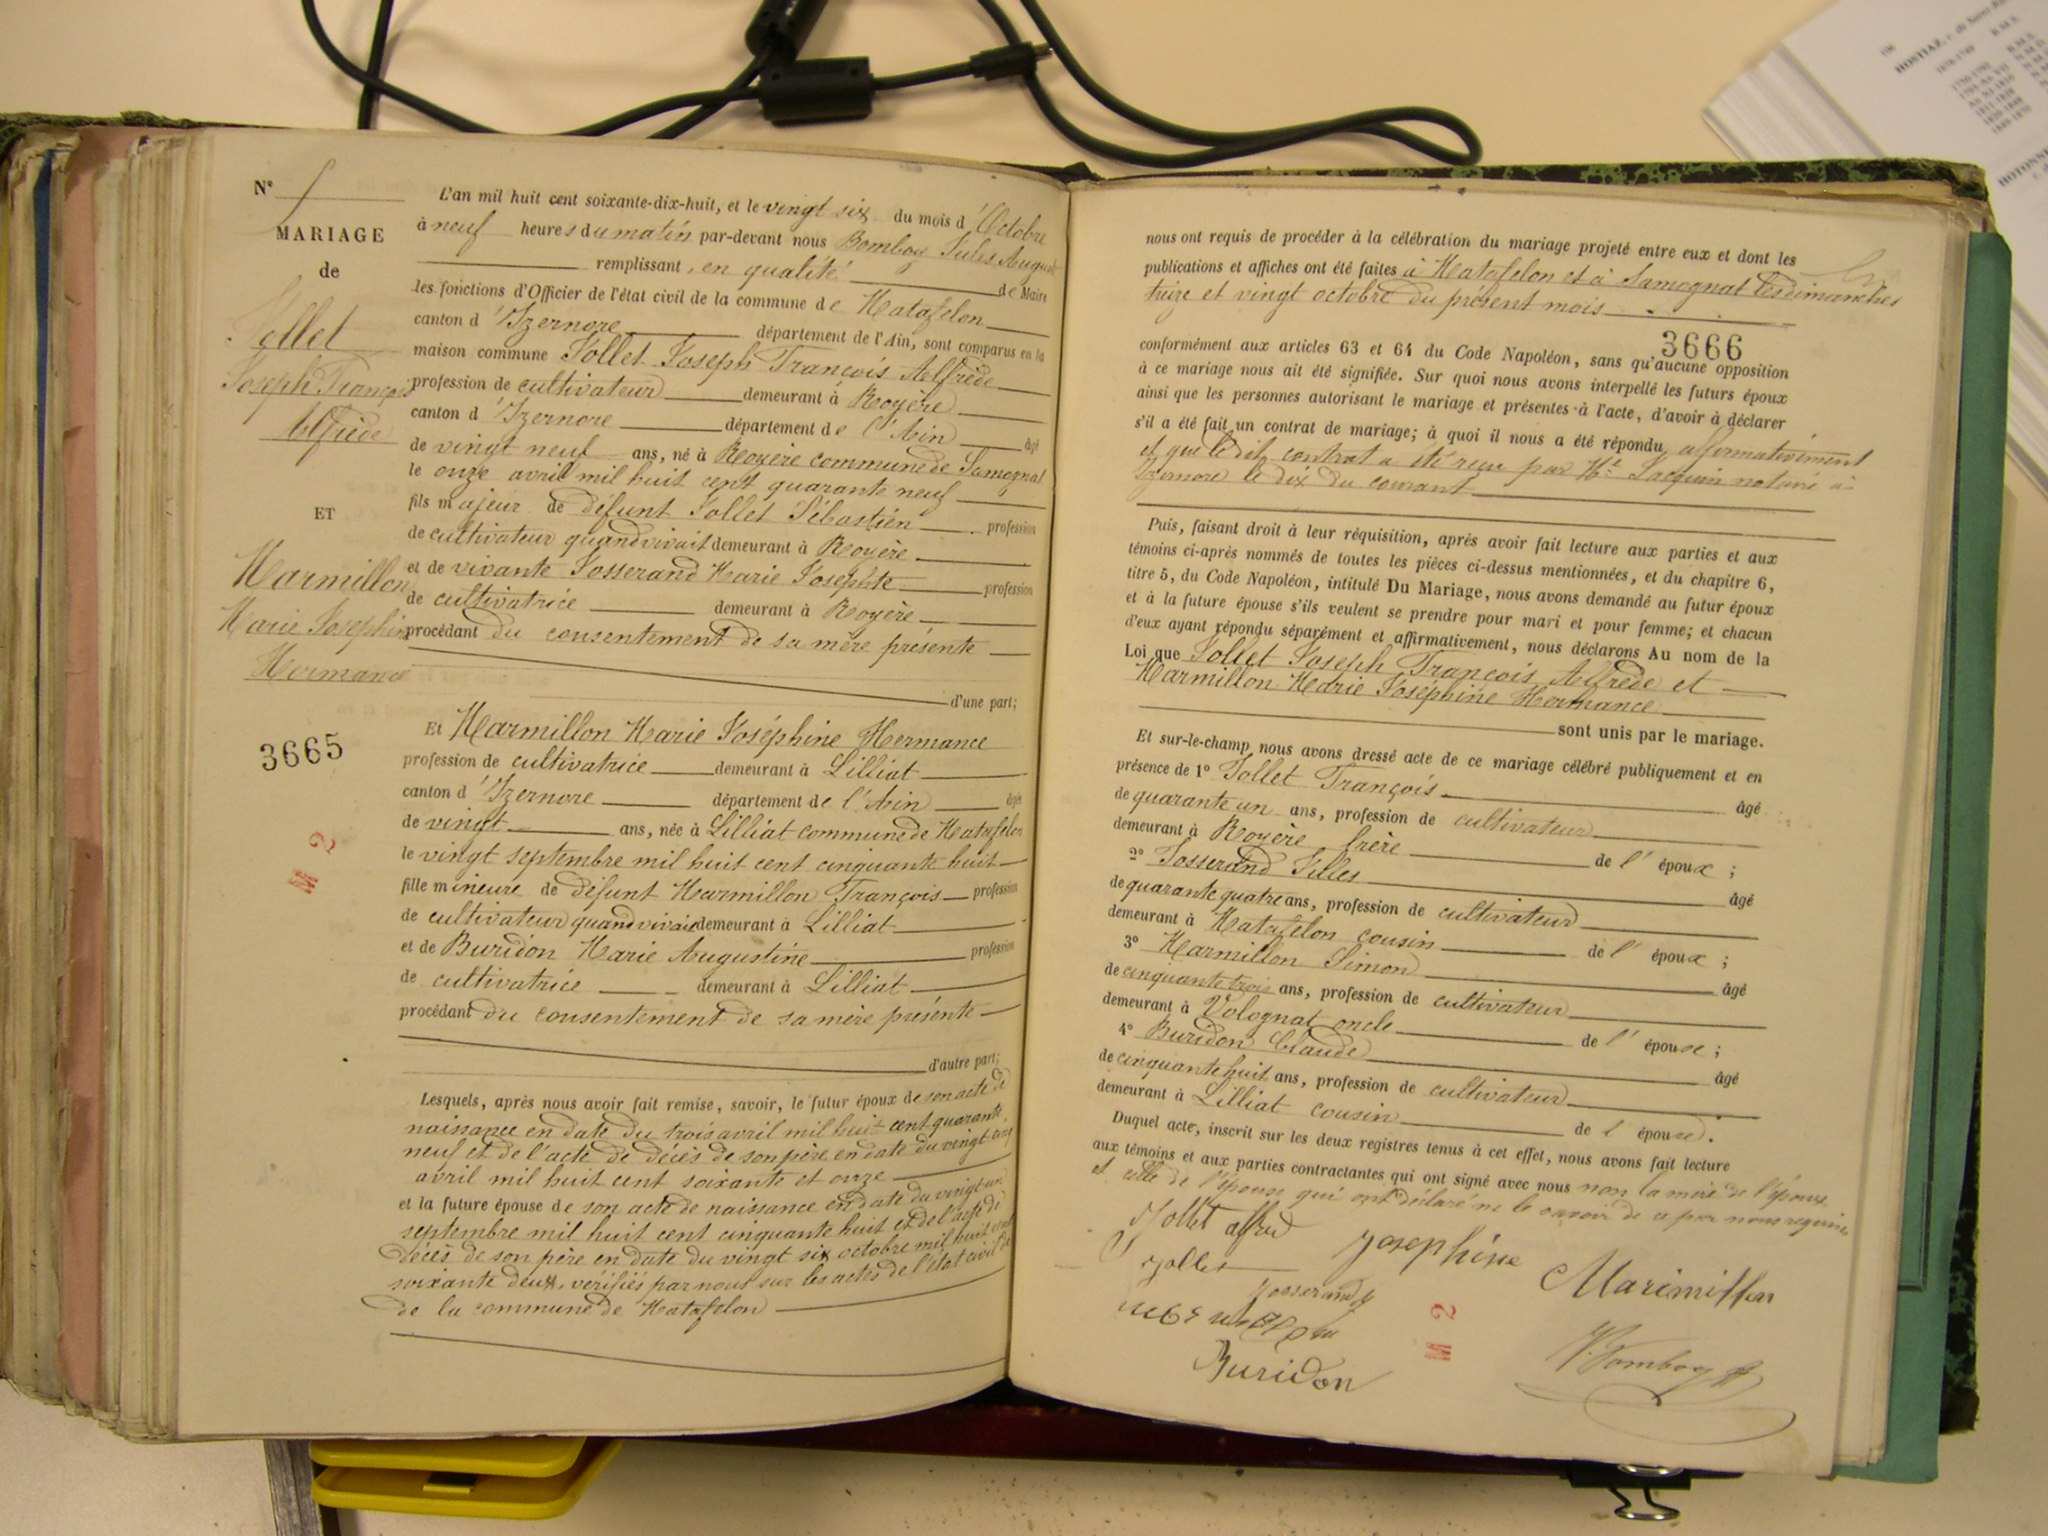 N° 5
MARIAGE
de
Jollet
Joseph François
Alfrède
ET
Marmillon
Marie Joséphine
Hermance
3665
M 2
L'an mil huit cent soixante-dix-huit, et le vingt six du mois d'Octobre
à neuf heures du matin par-devant nous Bomboy Jules August
remplissant, en qualité de Maire
les fonctions d'Officier de l'état civil de la commune de Matafelon
canton d'Izernore département de l'Ain, sont comparus en la
maison commune Jollet Joseph François Alfrède
profession de cultivateur demeurant à Royère
canton d'Izernore département de l'Ain âgé
de vingt neuf ans, né à Royère commune de Samognat
le onze avril mil huit cent quarante neuf
fils majeur de défunt Jollet Sébastien profession
de cultivateur quand vivait demeurant à Royère
et de vivante Josserand Marie Josephte profession
de cultivatrice demeurant à Royère
procédant du consentement de sa mère présente
d'une part;
Et Marmillon Marie Joséphine Hermance
profession de cultivatrice demeurant à Lilliat
canton d'Izernore département de l'Ain âgée
de vingt ans, née à Lilliat commune de Matafelon
le vingt septembre mil huit cent cinquante huit
fille mineure de défunt Marmillon François profession
de cultivateur quand vivait demeurant à Lilliat
et de Buridon Marie Augustine profession
de cultivatrice demeurant à Lilliat
procédant du consentement de sa mère présente
d'autre part;
Lesquels, après nous avoir fait remise, savoir, le futur époux de son acte de
naissance en date du trois avril mil huit cent quarante
neuf et de l'acte de décès de son père en date du vingt cinq
avril mil huit cent soixante et onze
et la future épouse de son acte de naissance en date du vingt un
septembre mil huit cent cinquante huit et de l'acte de
décès de son père en date du vingt six octobre mil huit cent
soixante deux, vérifiés par nous sur les actes de l'état civil de
de la commune de Matafelon
nous ont requis de procéder à la célébration du mariage projeté entre eux et dont les
publications et affiches ont été faites à Matafelon et à Samognat les dimanches
treize et vingt octobre du présent mois
3666
conformément aux articles 63 et 64 du Code Napoléon, sans qu'aucune opposition
à ce mariage nous ait été signifiée. Sur quoi nous avons interpellé les futurs époux
ainsi que les personnes autorisant le mariage et présentes à l'acte, d'avoir à déclarer
s'il a été fait un contrat de mariage; à quoi il nous a été répondu affirmativement
et que ledit contrat a été reçu par Mt Jacquin notaire à
Izernore le dix du courant
Puis, faisant droit à leur réquisition, après avoir fait lecture aux parties et aux
témoins ci-après nommés de toutes les pièces ci-dessus mentionnées, et du chapitre 6,
titre 5, du Code Napoléon, intitulé Du Mariage, nous avons demandé au futur époux
et à la future épouse s'ils veulent se prendre pour mari et pour femme; et chacun
d'eux ayant répondu séparément et affirmativement, nous déclarons Au nom de la
Loi que Jollet Joseph François Alfrède et
Marmillon Marie Joséphine Hermance
sont unis par le mariage.
Et sur-le-champ nous avons dressé acte de ce mariage célébré publiquement et en
présence de 1° Jollet François âgé
de quarante un ans, profession de cultivateur
demeurant à Royère frère de l'époux;
2° Josserand Gilles âgé
de quarante quatre ans, profession de cultivateur
demeurant à Matafelon cousin de l'époux;
3° Marmillon Simon âgé
de cinquante trois ans, profession de cultivateur
demeurant à Volognat oncle de l'épouse;
4° Buridon Claude âgé
de cinquante huit ans, profession de cultivateur
demeurant à Lilliat cousin de l'épouse.
Duquel acte, inscrit sur les deux registres tenus à cet effet, nous avons fait lecture
aux témoins et aux parties contractantes qui ont signé avec nous non la mère de l'époux
et celle de l'épouse qui ont déclaré ne le savoir de ce par nous requises
Jollet alfred Josephine Marimillon
Jollet
Josserand g
Buridon
Bomboy
M 2
HOSTIAZ